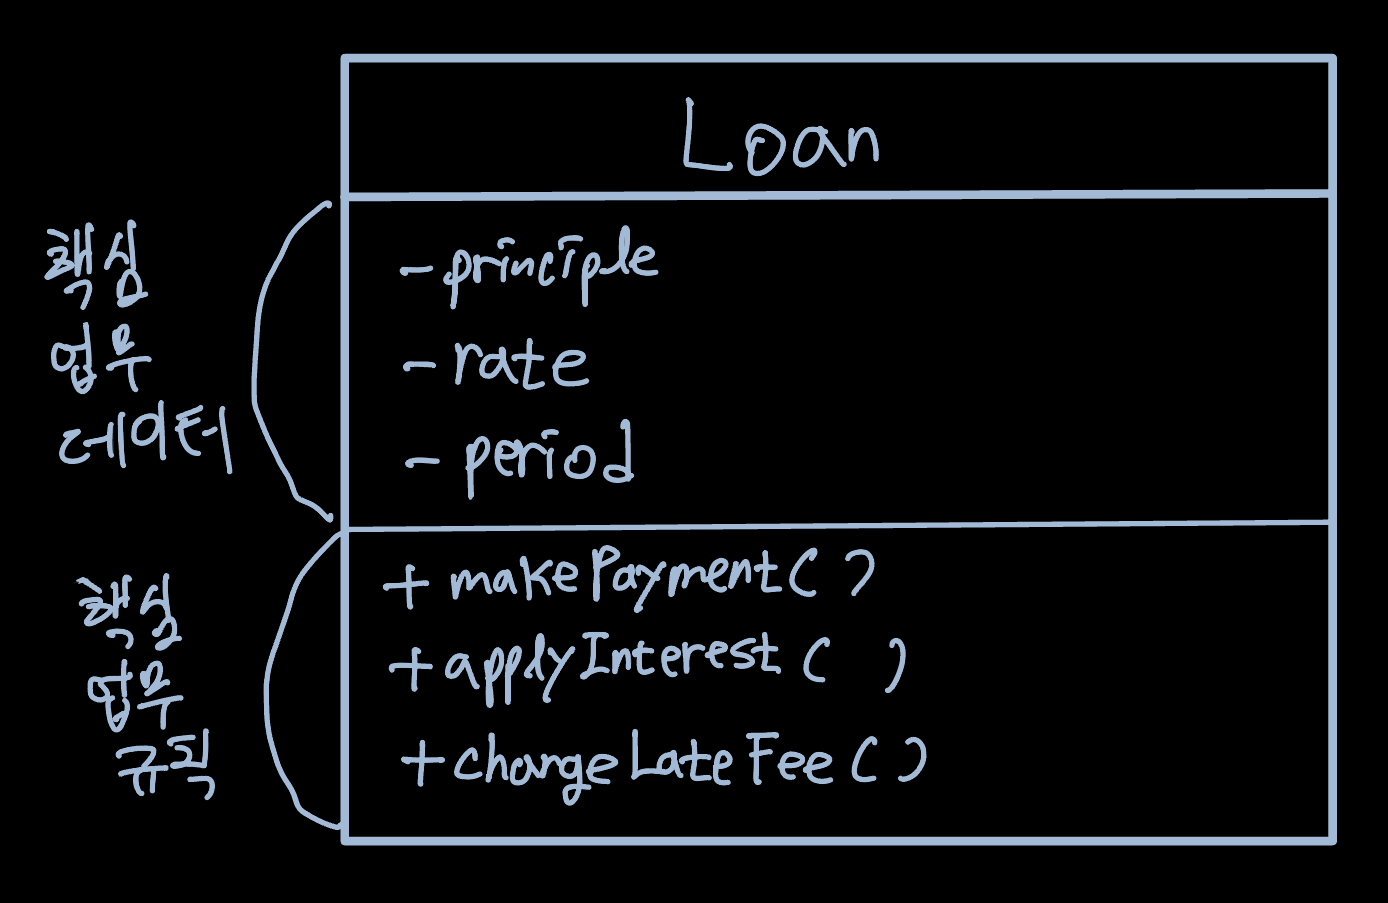 Loan
핵심
업무
데이터
- principle
- rate
- period
핵심
업무
규칙
+ makePayment( )
+ applyInterest ( )
+ changeLateFee ( )